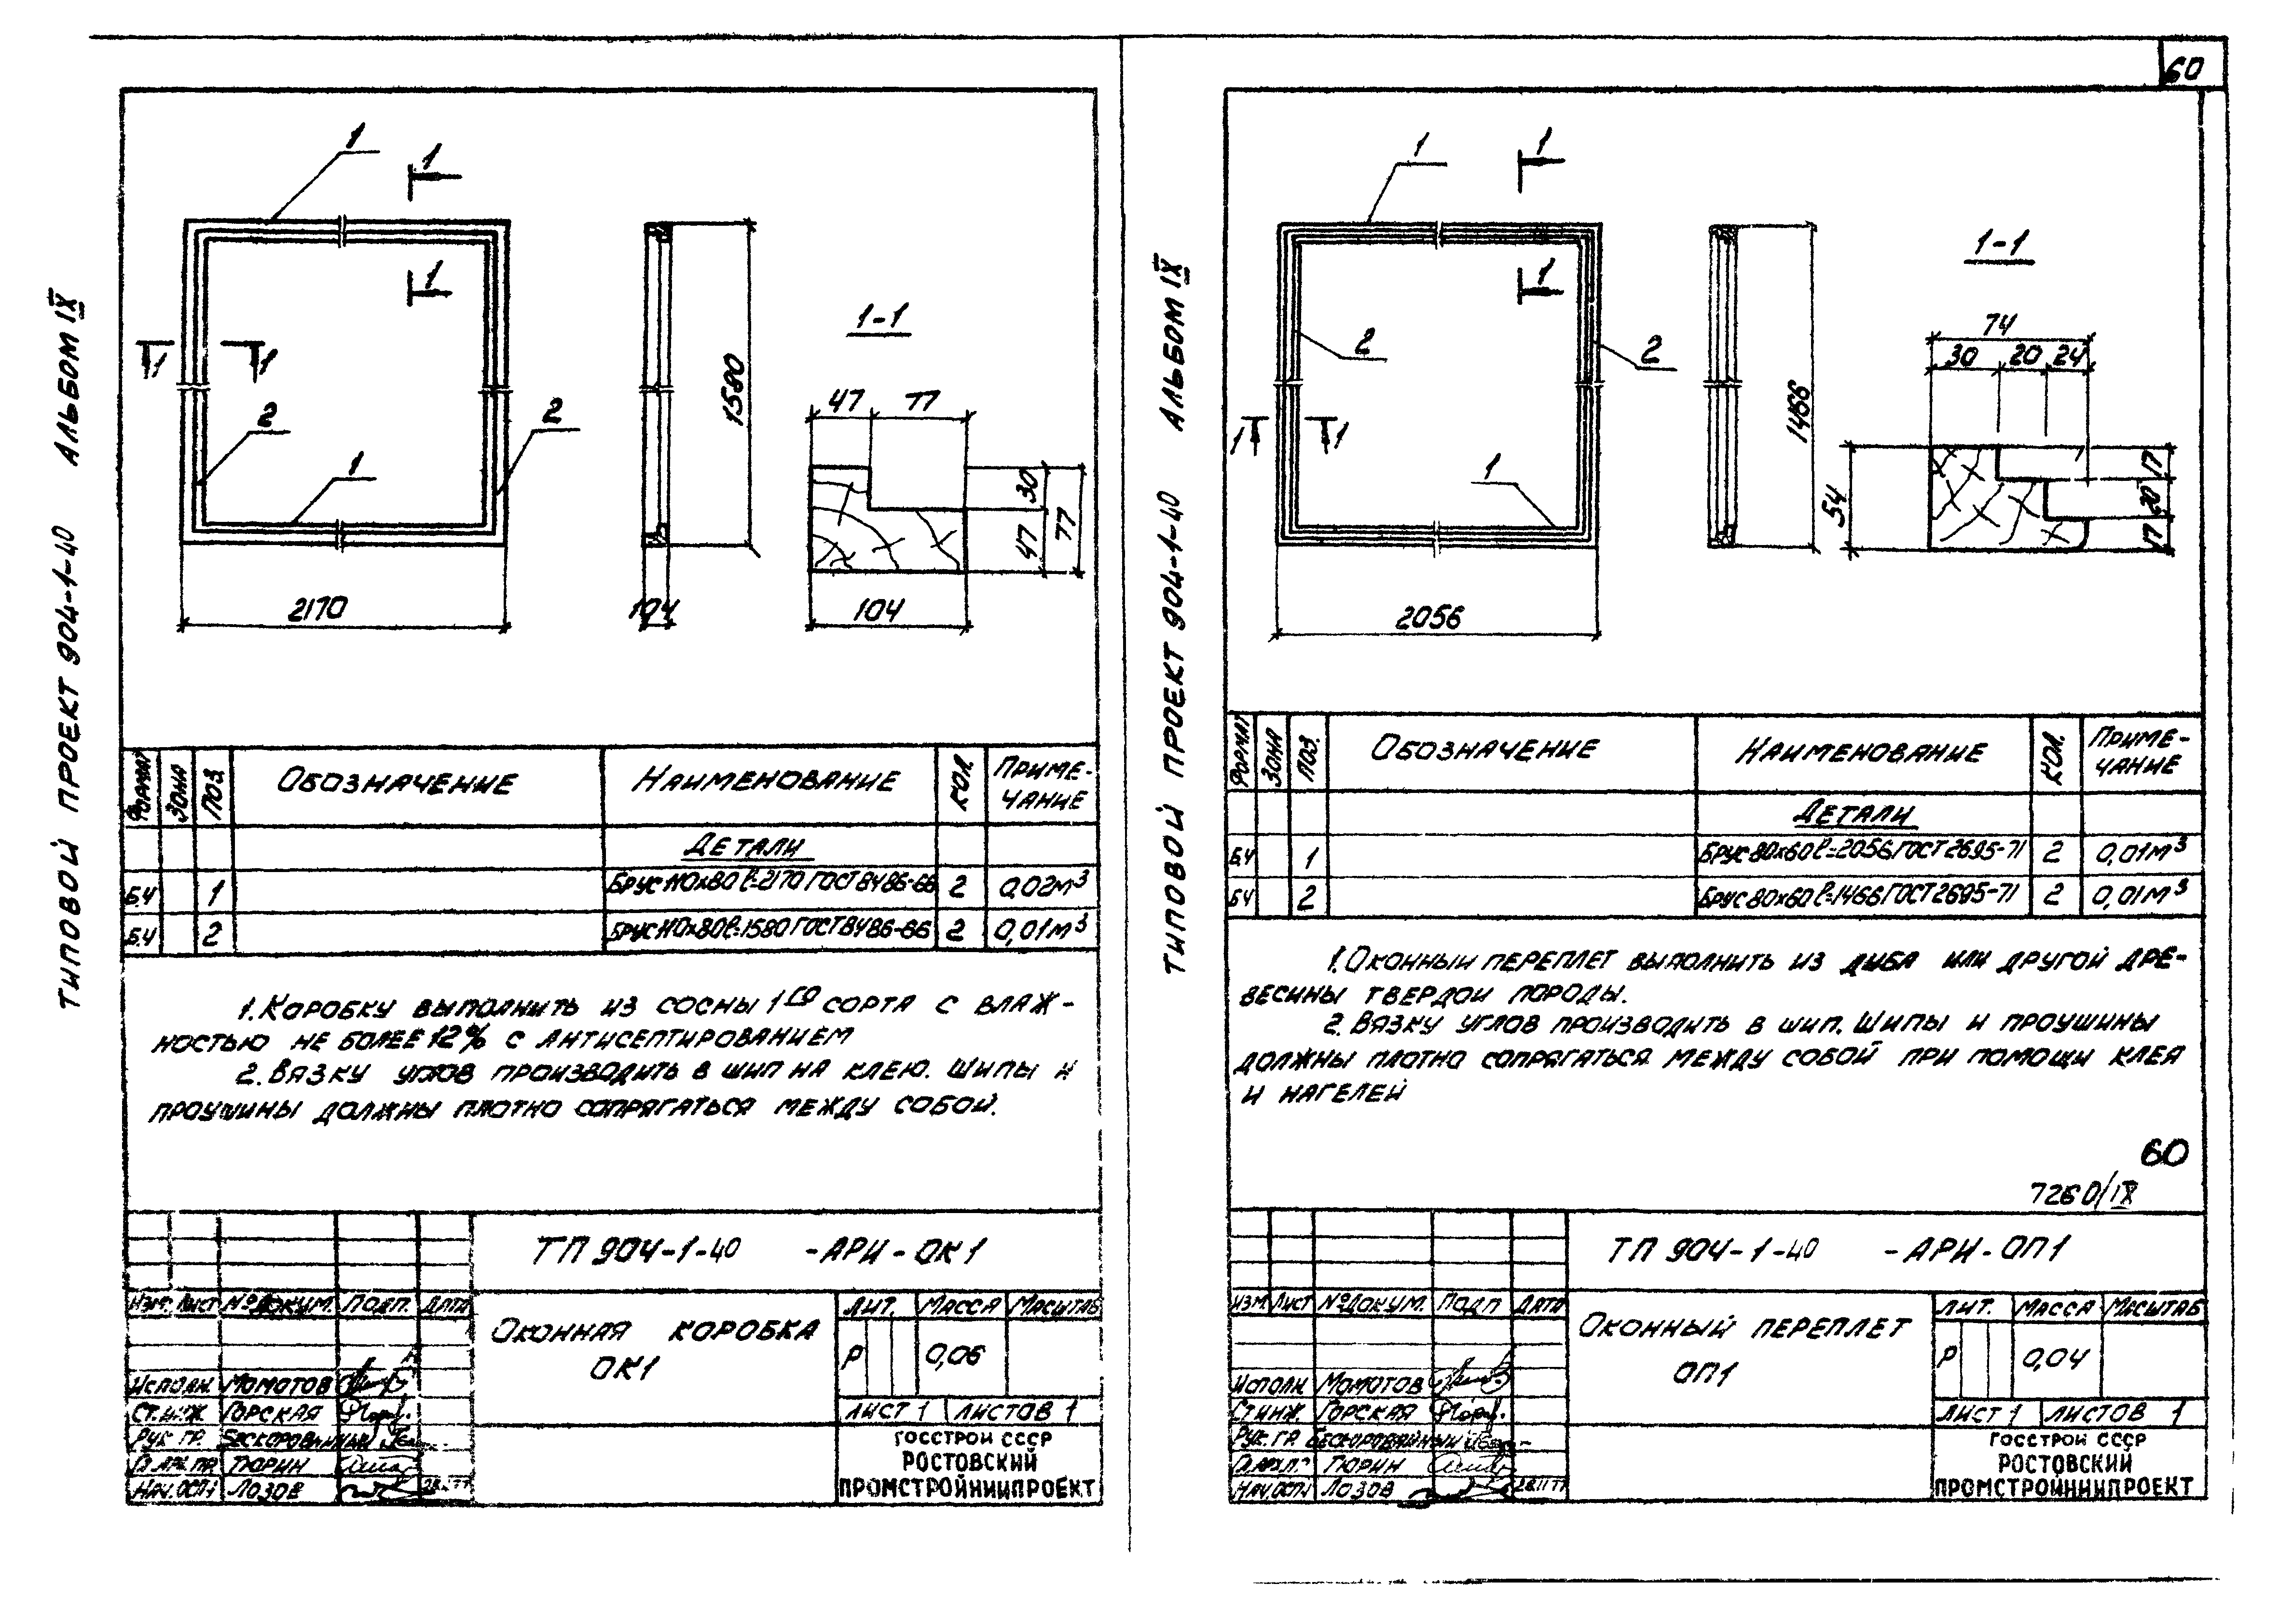 60
ТИПОВОЙ ПРОЕКТ 904-1-40 АЛЬБОМ IX
1
1
1
1 1
2
2
1
2170
1580
104
1-1
47 77
30
47
77
104
ФОРМАТ ЗОНА ПОЗ. ОБОЗНАЧЕНИЕ НАИМЕНОВАНИЕ КОЛ. ПРИМЕ-
ЧАНИЕ
ДЕТАЛИ
Б.Ч 1 БРУС 110х80 ℓ=2170 ГОСТ 8486-66 2 0,02м³
Б.Ч 2 БРУС 110х80 ℓ=1580 ГОСТ 8486-66 2 0,01м³
1. КОРОБКУ ВЫПОЛНИТЬ ИЗ СОСНЫ 1ГО СОРТА С ВЛАЖ-
НОСТЬЮ НЕ БОЛЕЕ 12% С АНТИСЕПТИРОВАНИЕМ
2. ВЯЗКУ УГЛОВ ПРОИЗВОДИТЬ В ШИП НА КЛЕЮ. ШИПЫ И
ПРОУШИНЫ ДОЛЖНЫ ПЛОТНО СОПРЯГАТЬСЯ МЕЖДУ СОБОЙ.
ТП 904-1-40 -АРИ-ОК1
ИЗМ. ЛИСТ № ДОКУМ. ПОДП. ДАТА
ОКОННАЯ КОРОБКА
ОК1
ЛИТ. МАССА МАСШТАБ
Р 0,06
ИСПОЛН. МОМОТОВ
СТ.ИНЖ ГОРСКАЯ
РУК ГР. БЕСКОРОВАЙНЫЙ
ГЛ АРХ ПР ТЮРИН
НАЧ.ОСП-1 ЛОЗОВ
ЛИСТ 1 ЛИСТОВ 1
ГОССТРОЙ СССР
РОСТОВСКИЙ
ПРОМСТРОЙНИИПРОЕКТ
ТИПОВОЙ ПРОЕКТ 904-1-40 АЛЬБОМ IX
1
1
1
2
2
1 1
1
2056
1466
1-1
74
30 20 24
54
17
20
17
ФОРМАТ ЗОНА ПОЗ. ОБОЗНАЧЕНИЕ НАИМЕНОВАНИЕ КОЛ. ПРИМЕ-
ЧАНИЕ
ДЕТАЛИ
Б.Ч 1 БРУС 80х60 ℓ=2056 ГОСТ 2695-71 2 0,01м³
Б.Ч 2 БРУС 80х60 ℓ=1466 ГОСТ 2695-71 2 0,01м³
1. ОКОННЫЙ ПЕРЕПЛЕТ ВЫПОЛНИТЬ ИЗ ДУБА ИЛИ ДРУГОЙ ДРЕ-
ВЕСИНЫ ТВЕРДОЙ ПОРОДЫ.
2. ВЯЗКУ УГЛОВ ПРОИЗВОДИТЬ В ШИП. ШИПЫ И ПРОУШИНЫ
ДОЛЖНЫ ПЛОТНО СОПРЯГАТЬСЯ МЕЖДУ СОБОЙ ПРИ ПОМОЩИ КЛЕЯ
И НАГЕЛЕЙ
60
7260/IX
ТП 904-1-40 -АРИ-ОП1
ИЗМ. ЛИСТ № ДОКУМ. ПОДП ДАТА
ОКОННЫЙ ПЕРЕПЛЕТ
ОП1
ЛИТ. МАССА МАСШТАБ
Р 0,04
ИСПОЛН МОМОТОВ
СТ ИНЖ. ГОРСКАЯ
РУК. ГР БЕСКОРОВАЙНЫЙ
ТЮРИН
НАЧ.ОСП-1 ЛОЗОВ 28.11.77
ЛИСТ 1 ЛИСТОВ 1
ГОССТРОЙ СССР
РОСТОВСКИЙ
ПРОМСТРОЙНИИПРОЕКТ